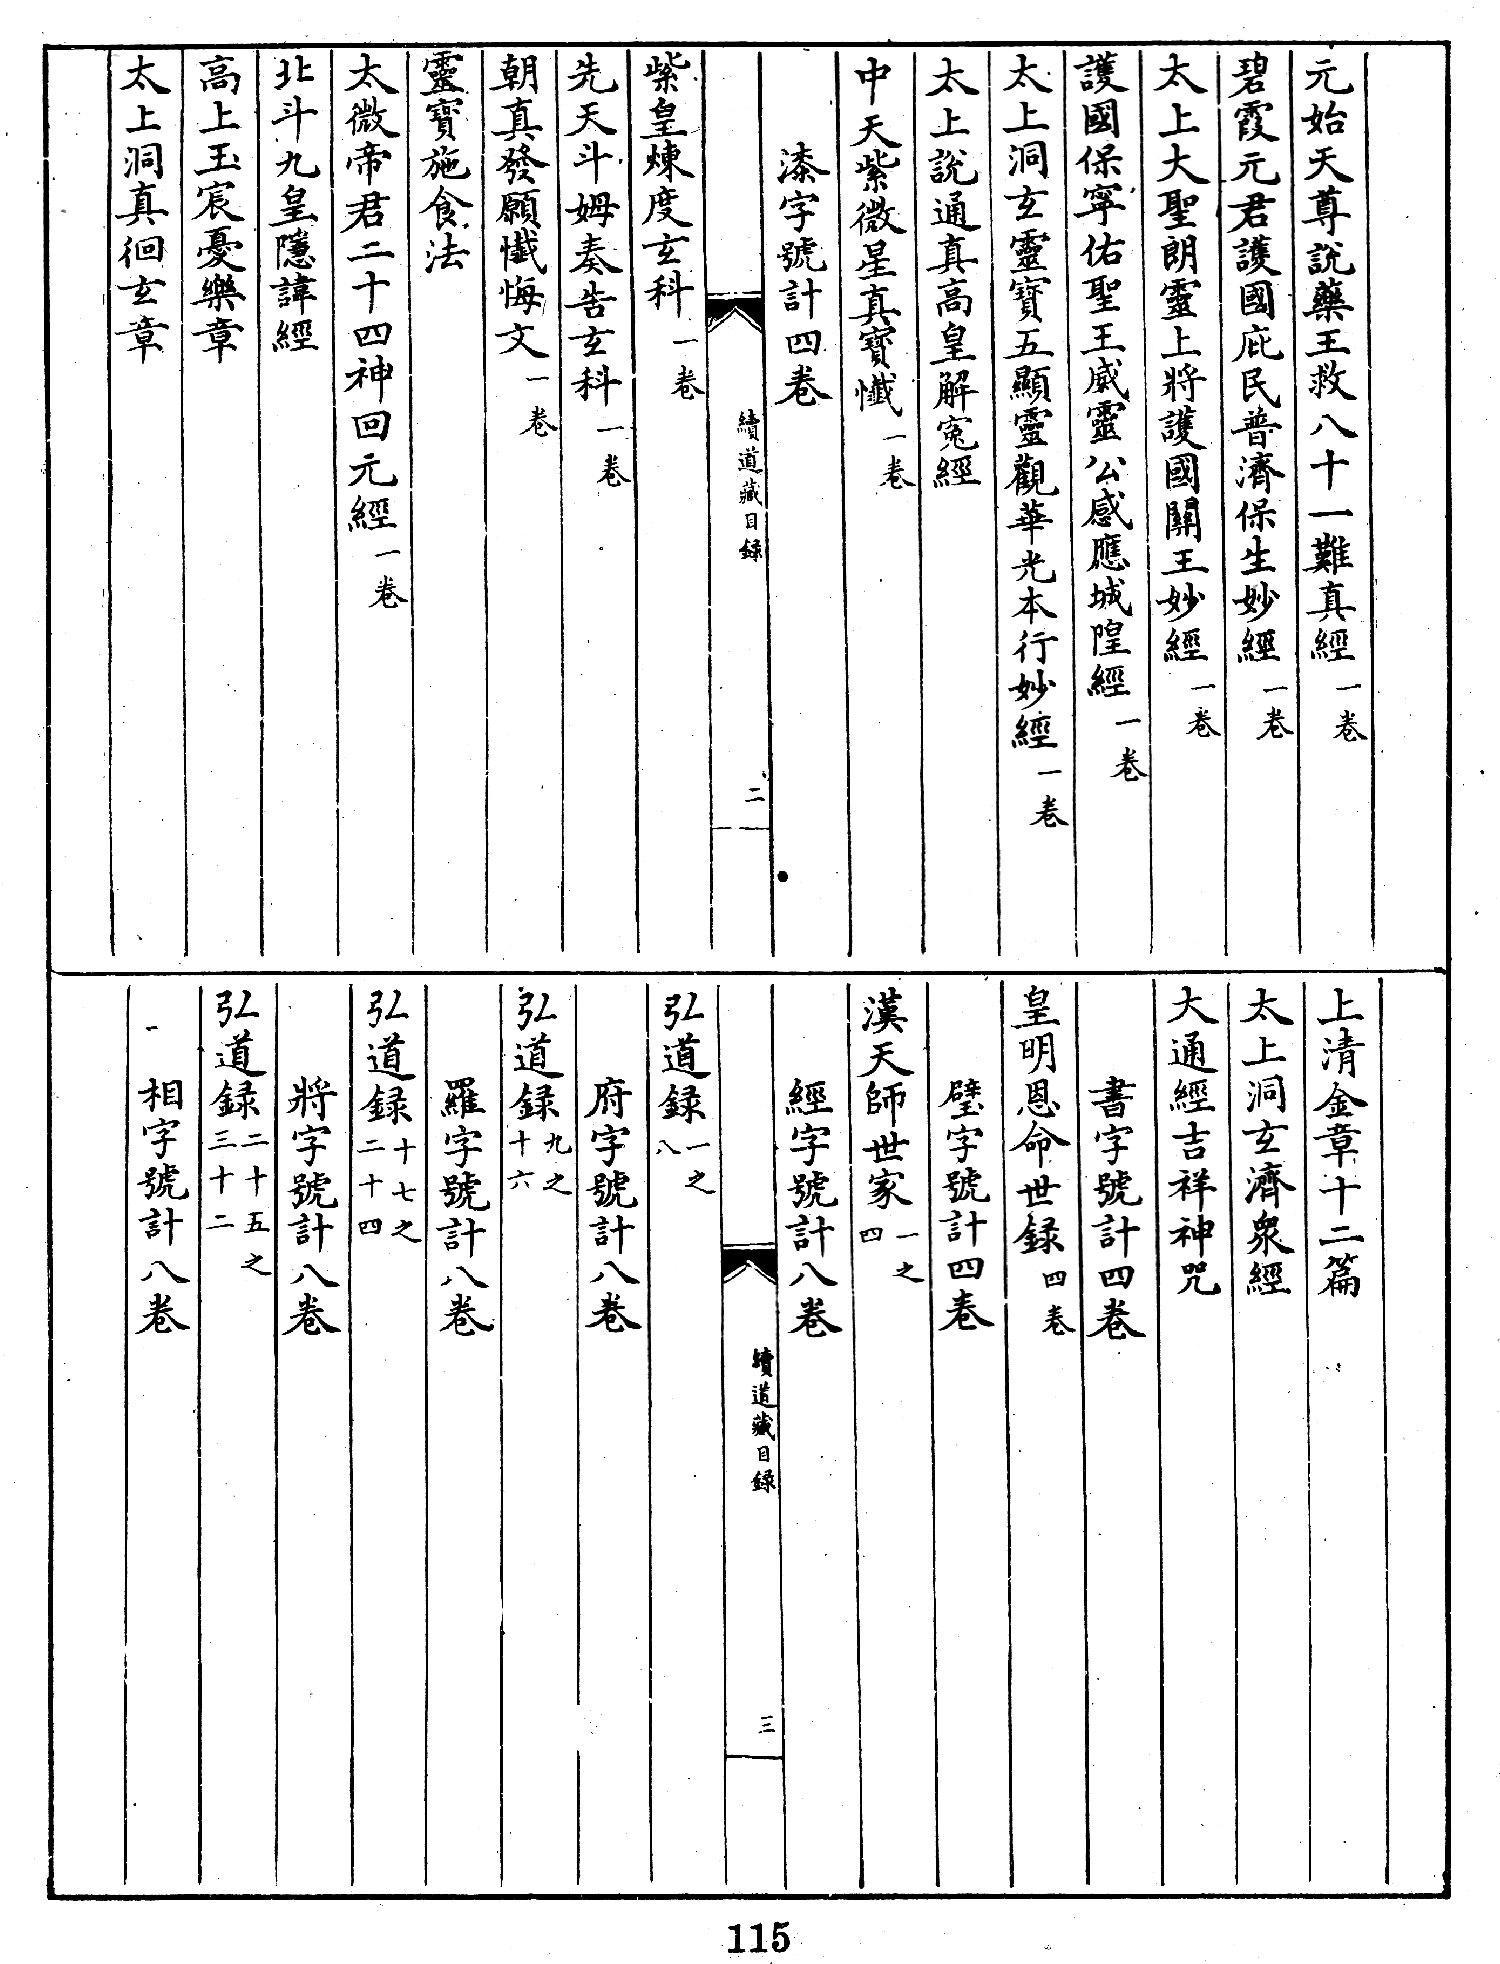 元始天尊說藥王救八十一難真經一卷
碧霞元君護國庇民普濟保生妙經一卷
太上大聖朗靈上將護國關王妙經一卷
護國保寧佑聖王威靈公感應城隍經一卷
太上洞玄靈寶五顯靈觀華光本行妙經一卷
太上說通真高皇解冤經
中天紫微星真寶懺一卷
漆字號計四卷
續道藏目録 二
紫皇煉度玄科一卷
先天斗姆奏告玄科一卷
朝真發願懺悔文一卷
靈寶施食法
太微帝君二十四神回元經一卷
北斗九皇隱諱經
高上玉宸憂樂章
太上洞真徊玄章
上清金章十二篇
太上洞玄濟衆經
大通經吉祥神咒
書字號計四卷
皇明恩命世録四卷
璧字號計四卷
漢天師世家一之四
經字號計八卷
續道藏目録 三
弘道録一之八
府字號計八卷
弘道録九之十六
羅字號計八卷
弘道録十七之二十四
將字號計八卷
弘道録二十五之三十二
相字號計八卷
115